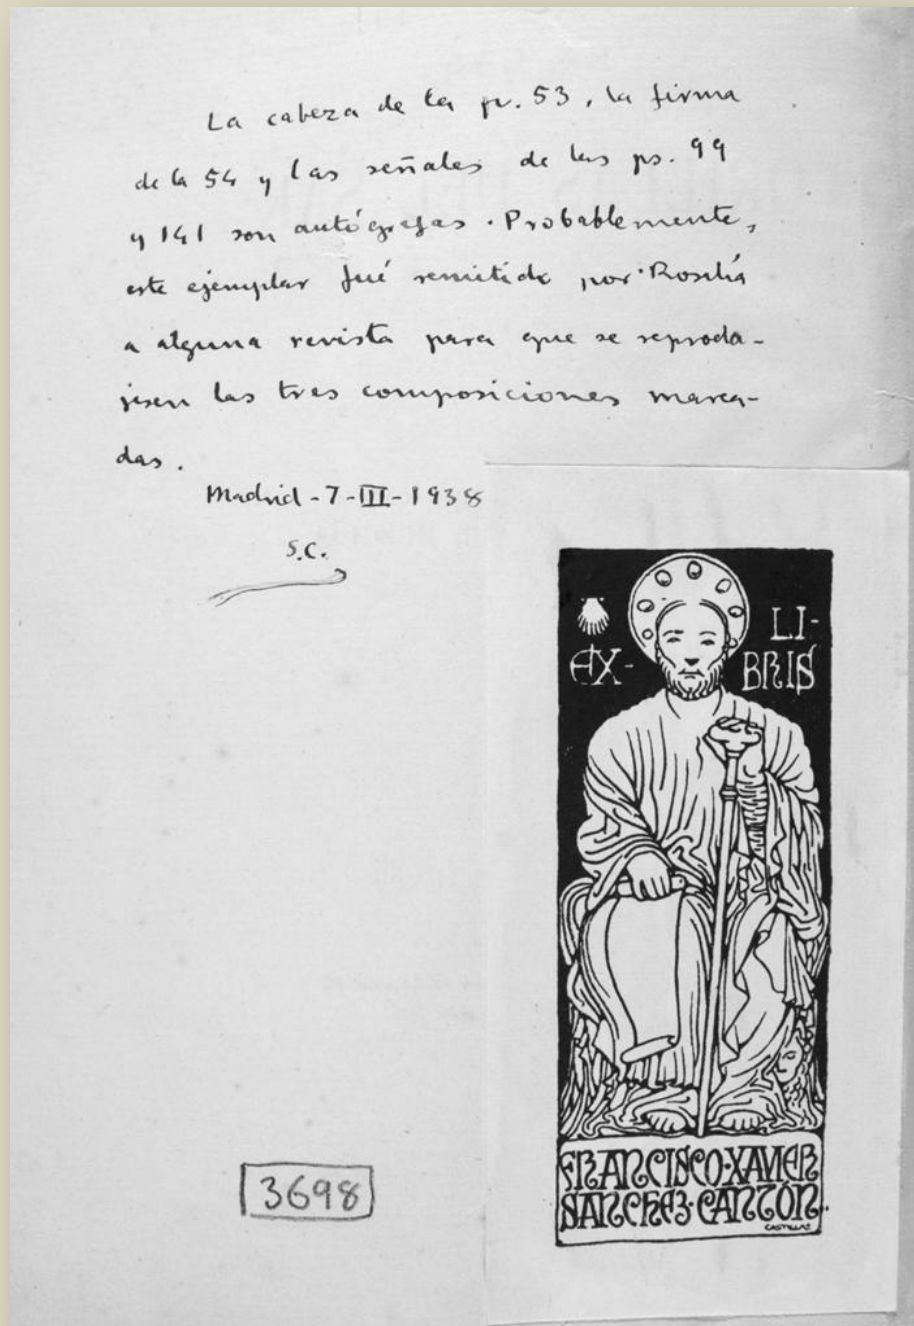 La cabeza de la p. 53, la firma
de la 54 y las señales de las ps. 99
y 141 son autógrafas. Probablemente,
este ejemplar fué remitido por Rosalía
a alguna revista para que se reprodu-
jesen las tres composiciones marca-
das.
Madrid-7-III-1938
S.C.
EX-
LI-
BRIS
FRANCISCO·XAVIER
SANCHEZ·CANTON
CASTELAO
3698